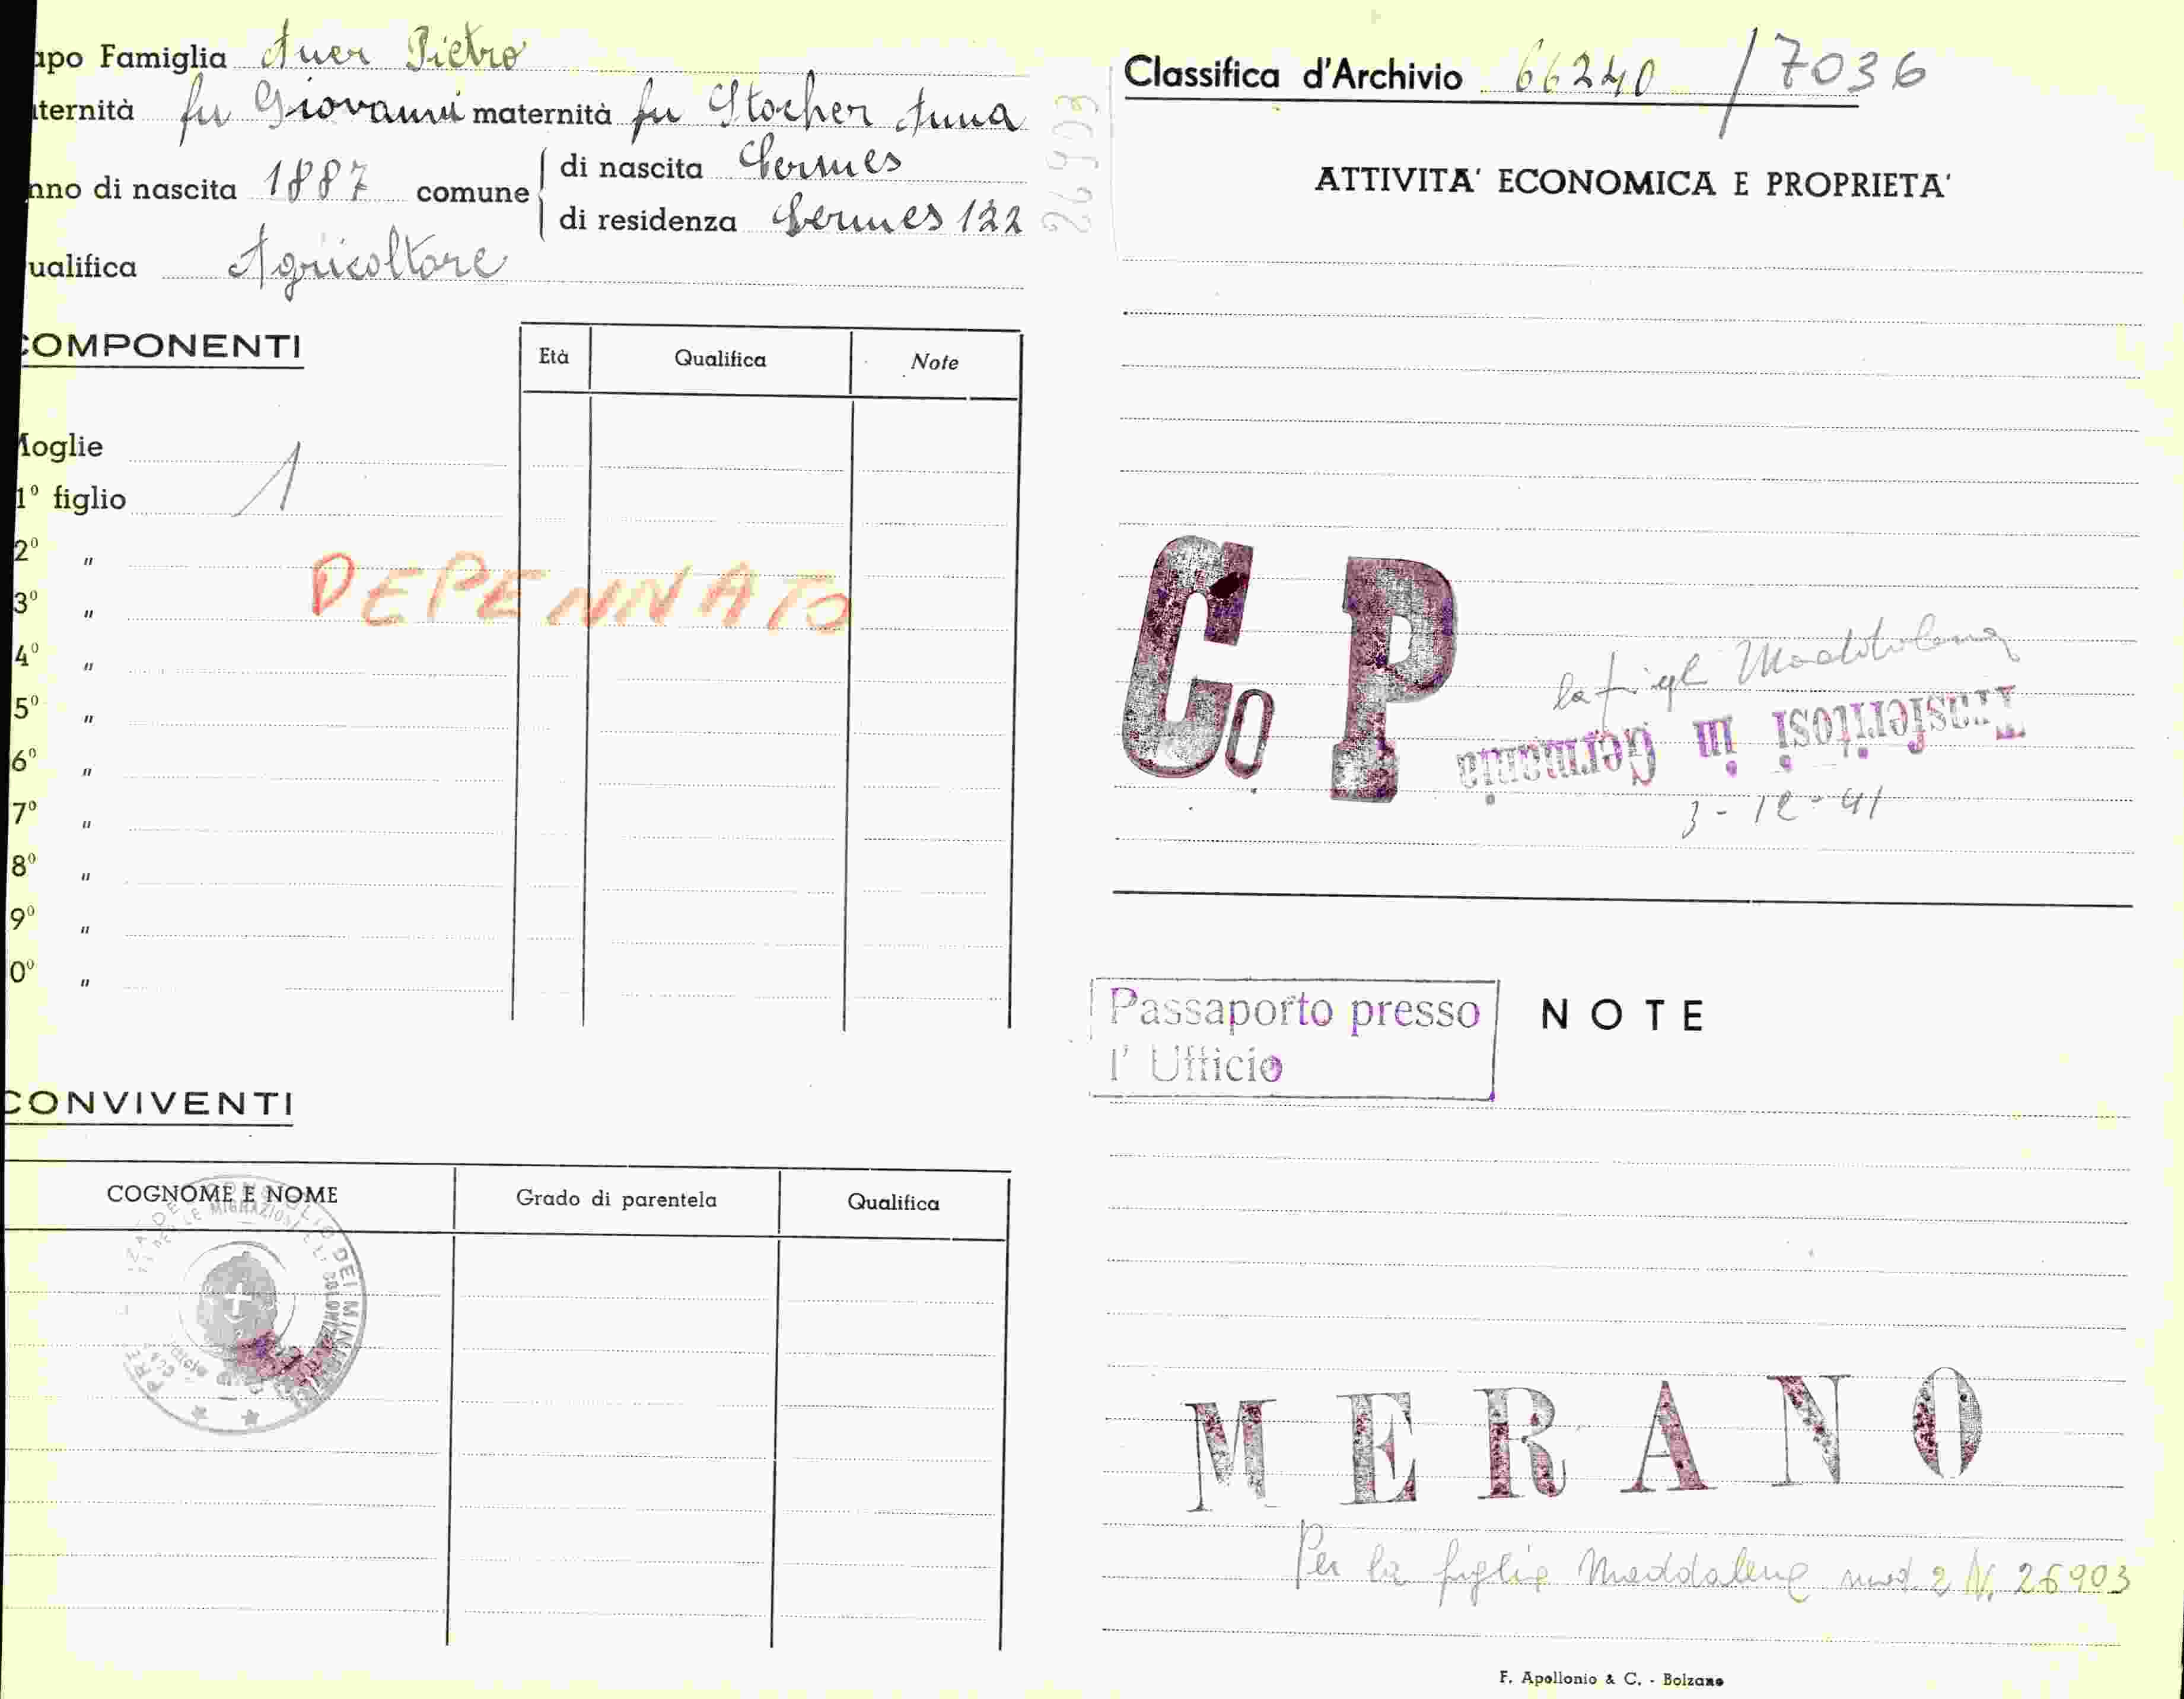 apo Famiglia Auer Pietro
aternità fu Giovanni maternità fu Stocher Anna
nno di nascita 1887 comune
di nascita Cermes
di residenza Cermes 122
ualifica Agricoltore
COMPONENTI
Età Qualifica Note
Moglie
1
1º figlio
2º "
3º "
DEPENNATO
4º "
5º "
6º "
7º "
8º "
9º "
0º "
CONVIVENTI
COGNOME E NOME Grado di parentela Qualifica
26903
Classifica d'Archivio 66240/7036
ATTIVITA' ECONOMICA E PROPRIETA'
Co P
la figl Maddalena
Trasferitosi in Germania
3-12-41
Passaporto presso
l' Ufficio
NOTE
MERANO
Per la figlia Maddalena mod. 2 N. 26903
F. Apollonio & C. - Bolzano